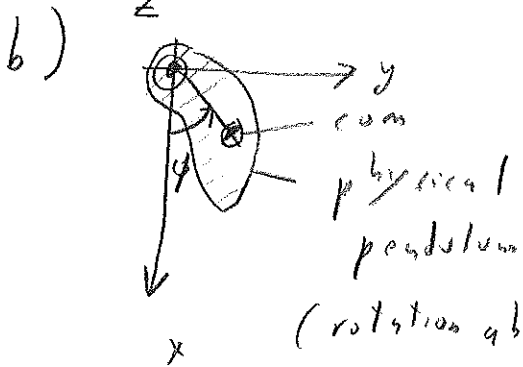 b)
z
y
com
φ
physical
pendulum
(rotation ab
x